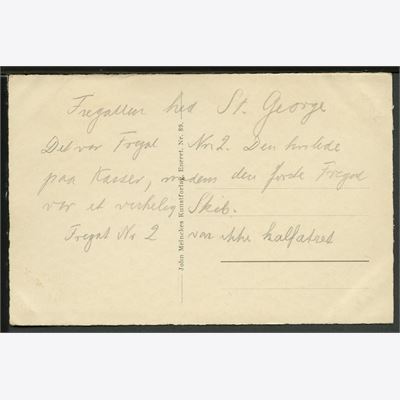 Fregatten hed St. George
Det var Fregat Nr. 2. Den hvilede
paa Kasser, medens den første Fregat
var et virkelig Skib.
Fregat Nr 2 var ikke kalfatret
John Meinckes Kunstforlag, Eneret. Nr. 89.